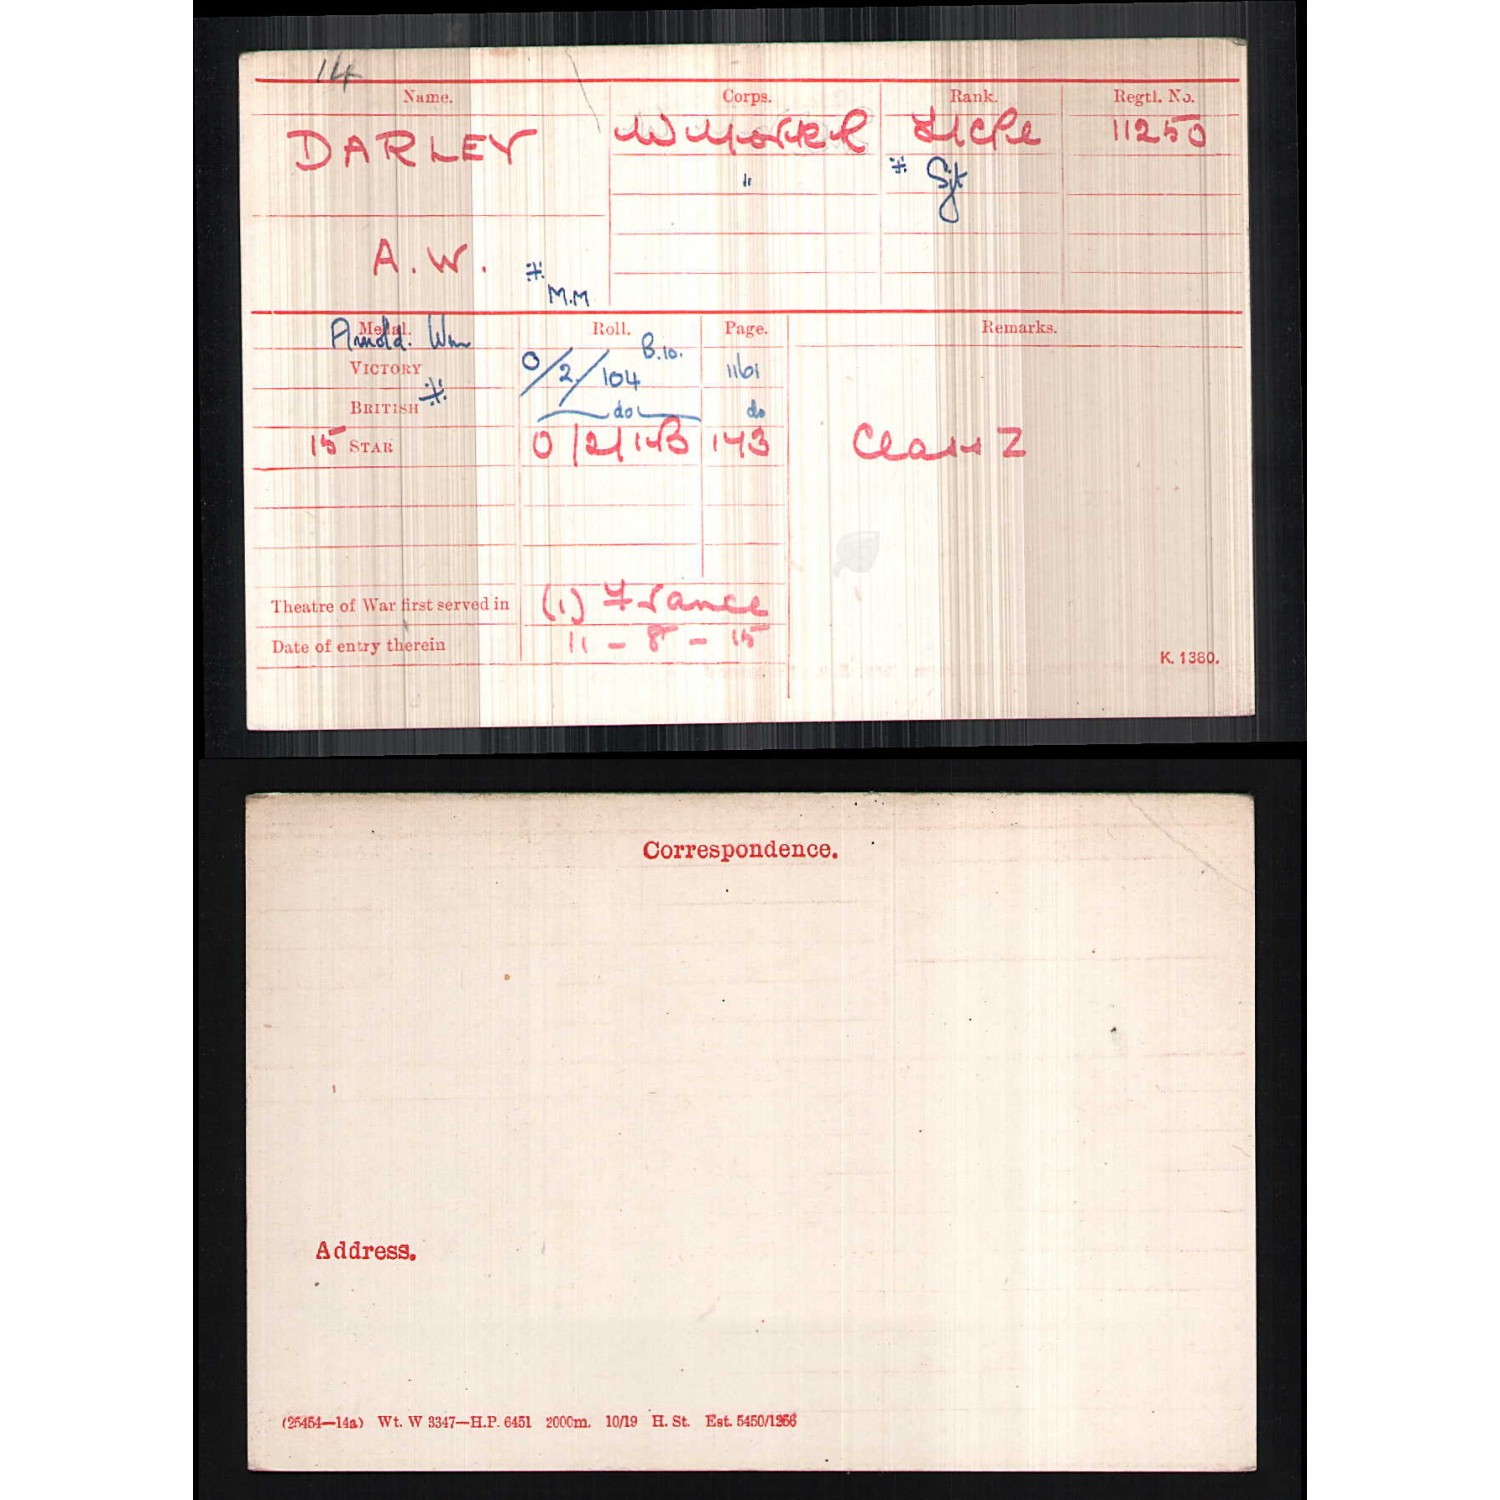 14
Name. Corps. Rank. Regtl. No.
DARLEY W York R L/Cpl 11250
" ※ Sjt
A. W. ※
M.M
Medal. Roll. Page. Remarks.
Arnold. Wm
VICTORY 0/2/104 B.10. 1161
BRITISH ※ do do
15 STAR 0/2/14B 143 Class Z
Theatre of War first served in (1) France
Date of entry therein 11 - 8 - 15
K. 1380.
Correspondence.
Address.
(25454—14a) Wt. W 3347—H.P. 6451 2000m. 10/19 H. St. Est. 5450/1256